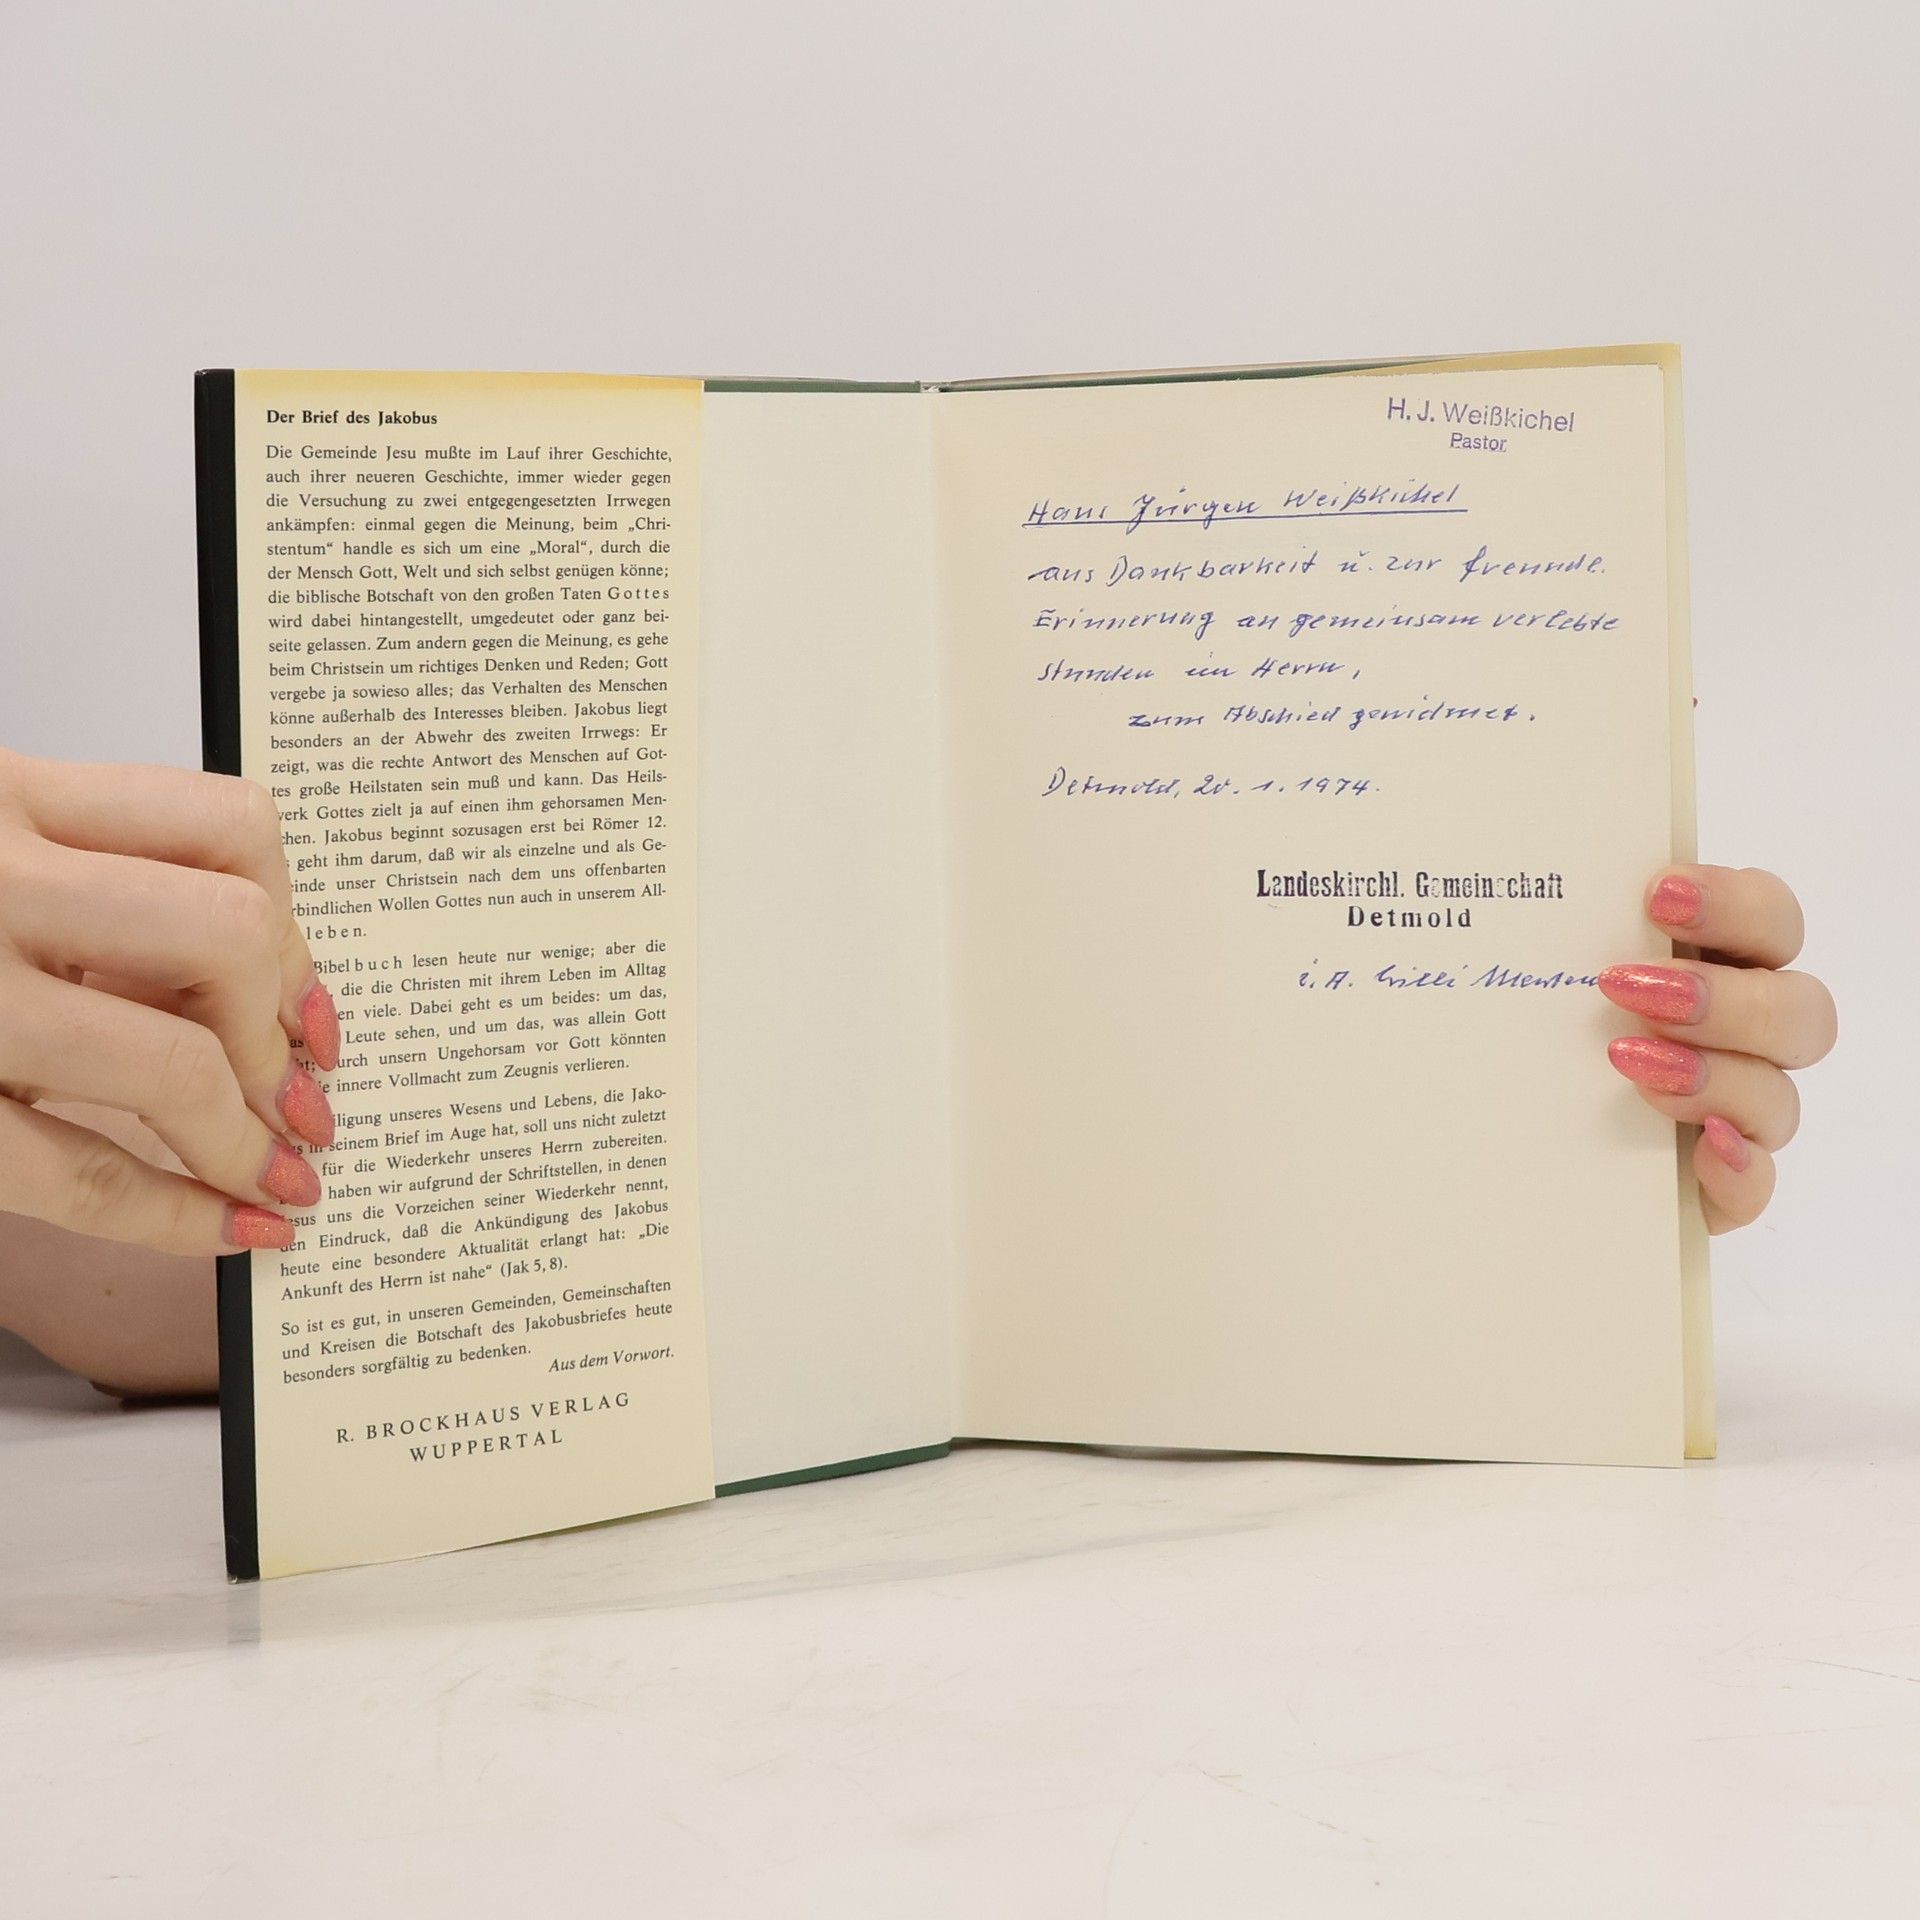 Der Brief des Jakobus
Die Gemeinde Jesu mußte im Lauf ihrer Geschichte,
auch ihrer neueren Geschichte, immer wieder gegen
die Versuchung zu zwei entgegengesetzten Irrwegen
ankämpfen: einmal gegen die Meinung, beim „Chri-
stentum“ handle es sich um eine „Moral“, durch die
der Mensch Gott, Welt und sich selbst genügen könne;
die biblische Botschaft von den großen Taten Gottes
wird dabei hintangestellt, umgedeutet oder ganz bei-
seite gelassen. Zum andern gegen die Meinung, es gehe
beim Christsein um richtiges Denken und Reden; Gott
vergebe ja sowieso alles; das Verhalten des Menschen
könne außerhalb des Interesses bleiben. Jakobus liegt
besonders an der Abwehr des zweiten Irrwegs: Er
zeigt, was die rechte Antwort des Menschen auf Got-
tes große Heilstaten sein muß und kann. Das Heils-
werk Gottes zielt ja auf einen ihm gehorsamen Men-
chen. Jakobus beginnt sozusagen erst bei Römer 12.
geht ihm darum, daß wir als einzelne und als Ge-
einde unser Christsein nach dem uns offenbarten
rbindlichen Wollen Gottes nun auch in unserem All-
leben.
Bibelbuch lesen heute nur wenige; aber die
die die Christen mit ihrem Leben im Alltag
en viele. Dabei geht es um beides: um das,
as Leute sehen, und um das, was allein Gott
ht; urch unsern Ungehorsam vor Gott könnten
e innere Vollmacht zum Zeugnis verlieren.
iligung unseres Wesens und Lebens, die Jako-
s in seinem Brief im Auge hat, soll uns nicht zuletzt
für die Wiederkehr unseres Herrn zubereiten.
haben wir aufgrund der Schriftstellen, in denen
esus uns die Vorzeichen seiner Wiederkehr nennt,
den Eindruck, daß die Ankündigung des Jakobus
heute eine besondere Aktualität erlangt hat: „Die
Ankunft des Herrn ist nahe“ (Jak 5, 8).
So ist es gut, in unseren Gemeinden, Gemeinschaften
und Kreisen die Botschaft des Jakobusbriefes heute
besonders sorgfältig zu bedenken.
Aus dem Vorwort.
R. BROCKHAUS VERLAG
WUPPERTAL
H. J. Weißkichel
Pastor
Hans Jürgen Weißkichel
aus Dankbarkeit u. zur freundl.
Erinnerung an gemeinsam verlebte
Stunden im Herrn,
zum Abschied gewidmet.
Detmold, 20. 1. 1974.
Landeskirchl. Gemeinschaft
Detmold
i. A. Willi